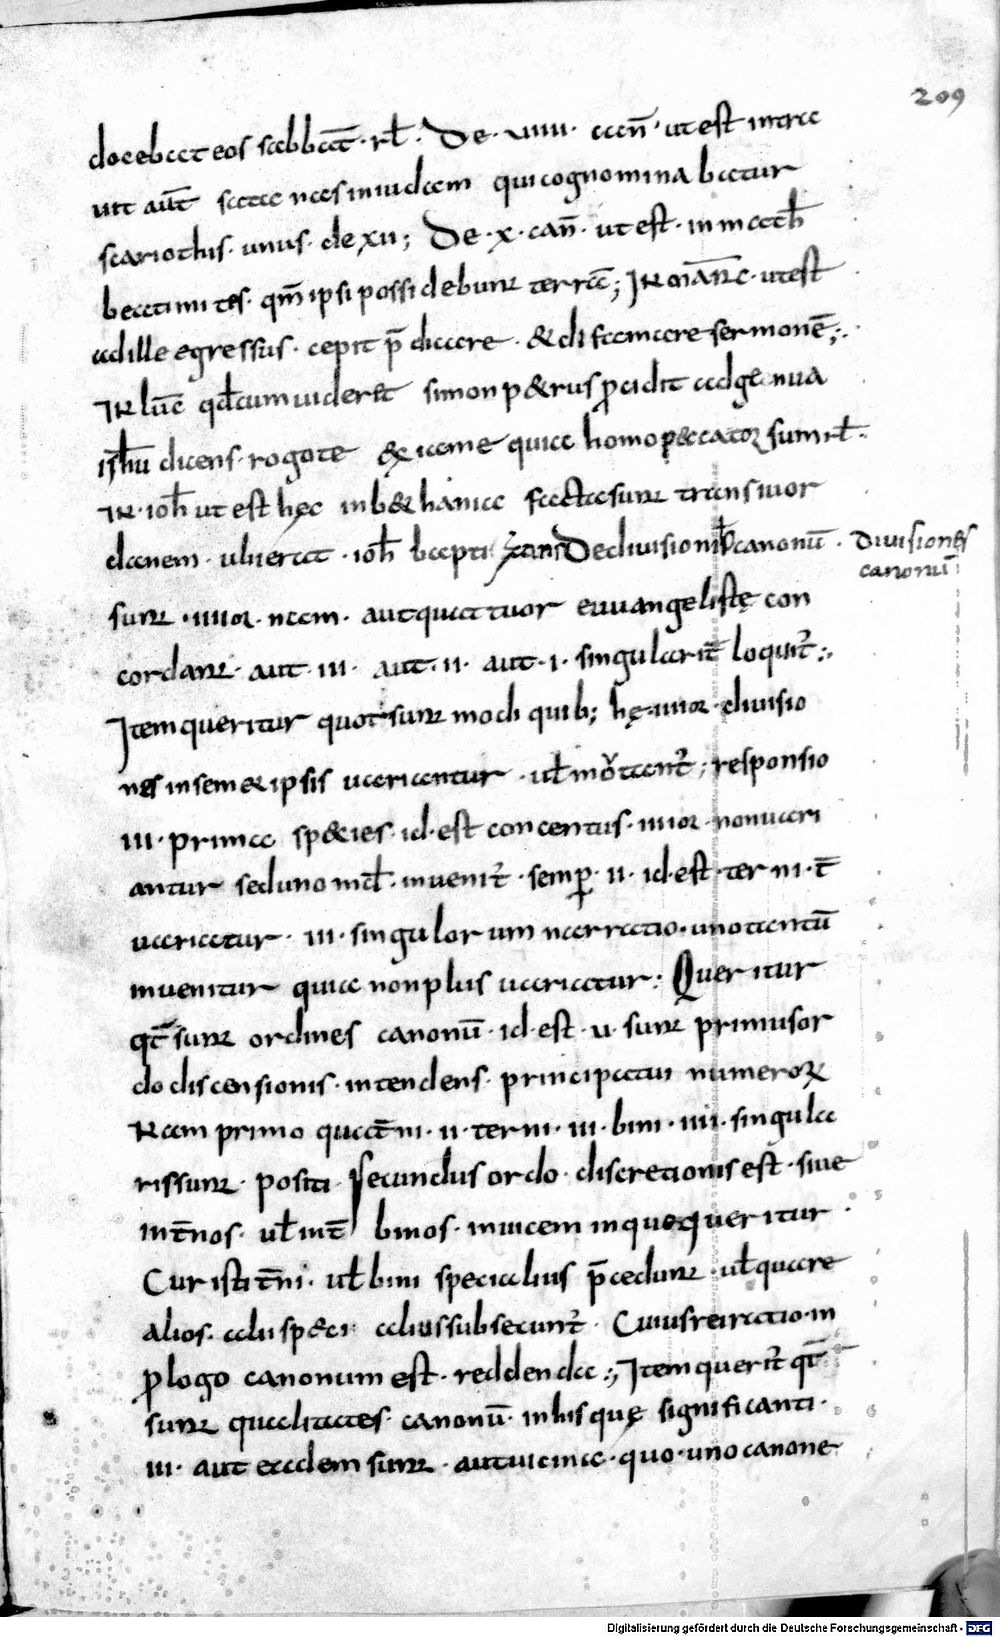 209
docebat eos sabbat̄ · rł · De · viiii · can̄ · ut est intra
vit aūt satanas in iudam qui cognominabatur
scariothis · unus · de xii ; De · x · can̄ · ut est · in math̄
beati mites · qm̄ ipsi possidebunt terrā ; It marc̄ · ut est
ad ille egressus · cepit p̄dicare · & diffamare sermonē ;
It lūc qd̄ cum videret̄ simon p&rus ꝓcidit ad genua
ih̄u dicens · rogo te exi a me quia homo peccator sum rł ·
It · ioh̄ ut est hęc in b&hania facta sunt trans ior
danem · ubi erat · ioh̄ baptizans De divisionib canonū ·
divisiones
canonū
sunt · iiiior · nam · aut quattuor euuangelistę con
cordant · aut iii · aut · ii · aut · i · singularit̄ loquit̄ ;
Item queritur quot sunt modi quib ; hę iiiior · divisio
nes in semetipsis variantur · vł mōtant̄ ; responsio
iii · prima sp&ies · id · est concentus · iiiior · non vari
antur sed uno md̄ · invenit̄ · semp̱ · ii · id · est · terni · t̄
variatur · iii · singulorum narratio · uno tantū
invenitur quia non plus variatur : Queritur
qt̄ sunt ordines canonū · id · est · v · sunt primus or
do discensionis · intendens · principatui numeroꝝ
Nam primo quat̄ni · ii · terni · iii · bini · iiii · singula
ris sunt · positi · secundus ordo · discretionis est · sive
int̄nos · vł int̄ binos · invicem in quo queritur ·
Cur isti t̄ni · vł bini specialius p̄cedunt · vł quare
alios · alii sp&i alius subsecunt̄ · Cuius rei ratio · in
ꝓlogo canonum est · reddenda ; Item querit̄ qt̄
sunt qualitates · canonū · in his quę significanti ·
iii · aut eadem sunt · aut vicina · quo · uno canone
Digitalisierung gefördert durch die Deutsche Forschungsgemeinschaft · DFG